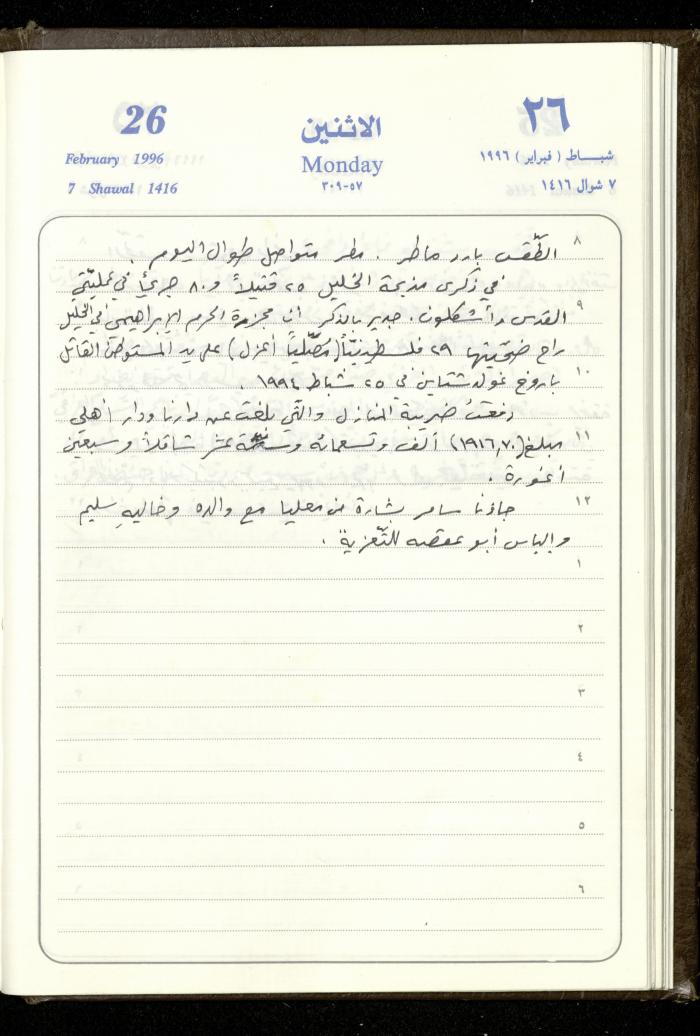 26
February 1996
7 Shawal 1416
الاثنين
Monday
٣٠٩-٥٧
٢٦
شباط ( فبراير ) ١٩٩٦
٧ شوال ١٤١٦
٨ الطّقس بارد ماطر . مطر متواصل طوال اليوم .
في ذكرى مذبحة الخليل ٢٥ قتيلاً و ٨٠ جريحاً في عمليّتي
٩ القدس وأشكلون . جدير بالذكر ان مجزرة الحرم الإبراهيمي في الخليل
راح ضحيّتها ٢٩ فلسطينيّاً (مصّلياً أعزل) على يد المستوطن القاتل
١٠ باروخ غولدشتاين في ٢٥ شباط ١٩٩٤ .
دفعتُ ضريبة المنازل والتّي بلغت عن دارنا ودار أهلي
١١ مبلغ (١٩١٦,٧٠) ألف وتسعمائة وستة عشر شاقلاً وسبعين
أغورة .
١٢ جاءنا سامر بشارة من معليا مع والده وخاليهِ سليم
والياس أبو عقصه للتّعزية .
١
٢
٣
٤
٥
٦